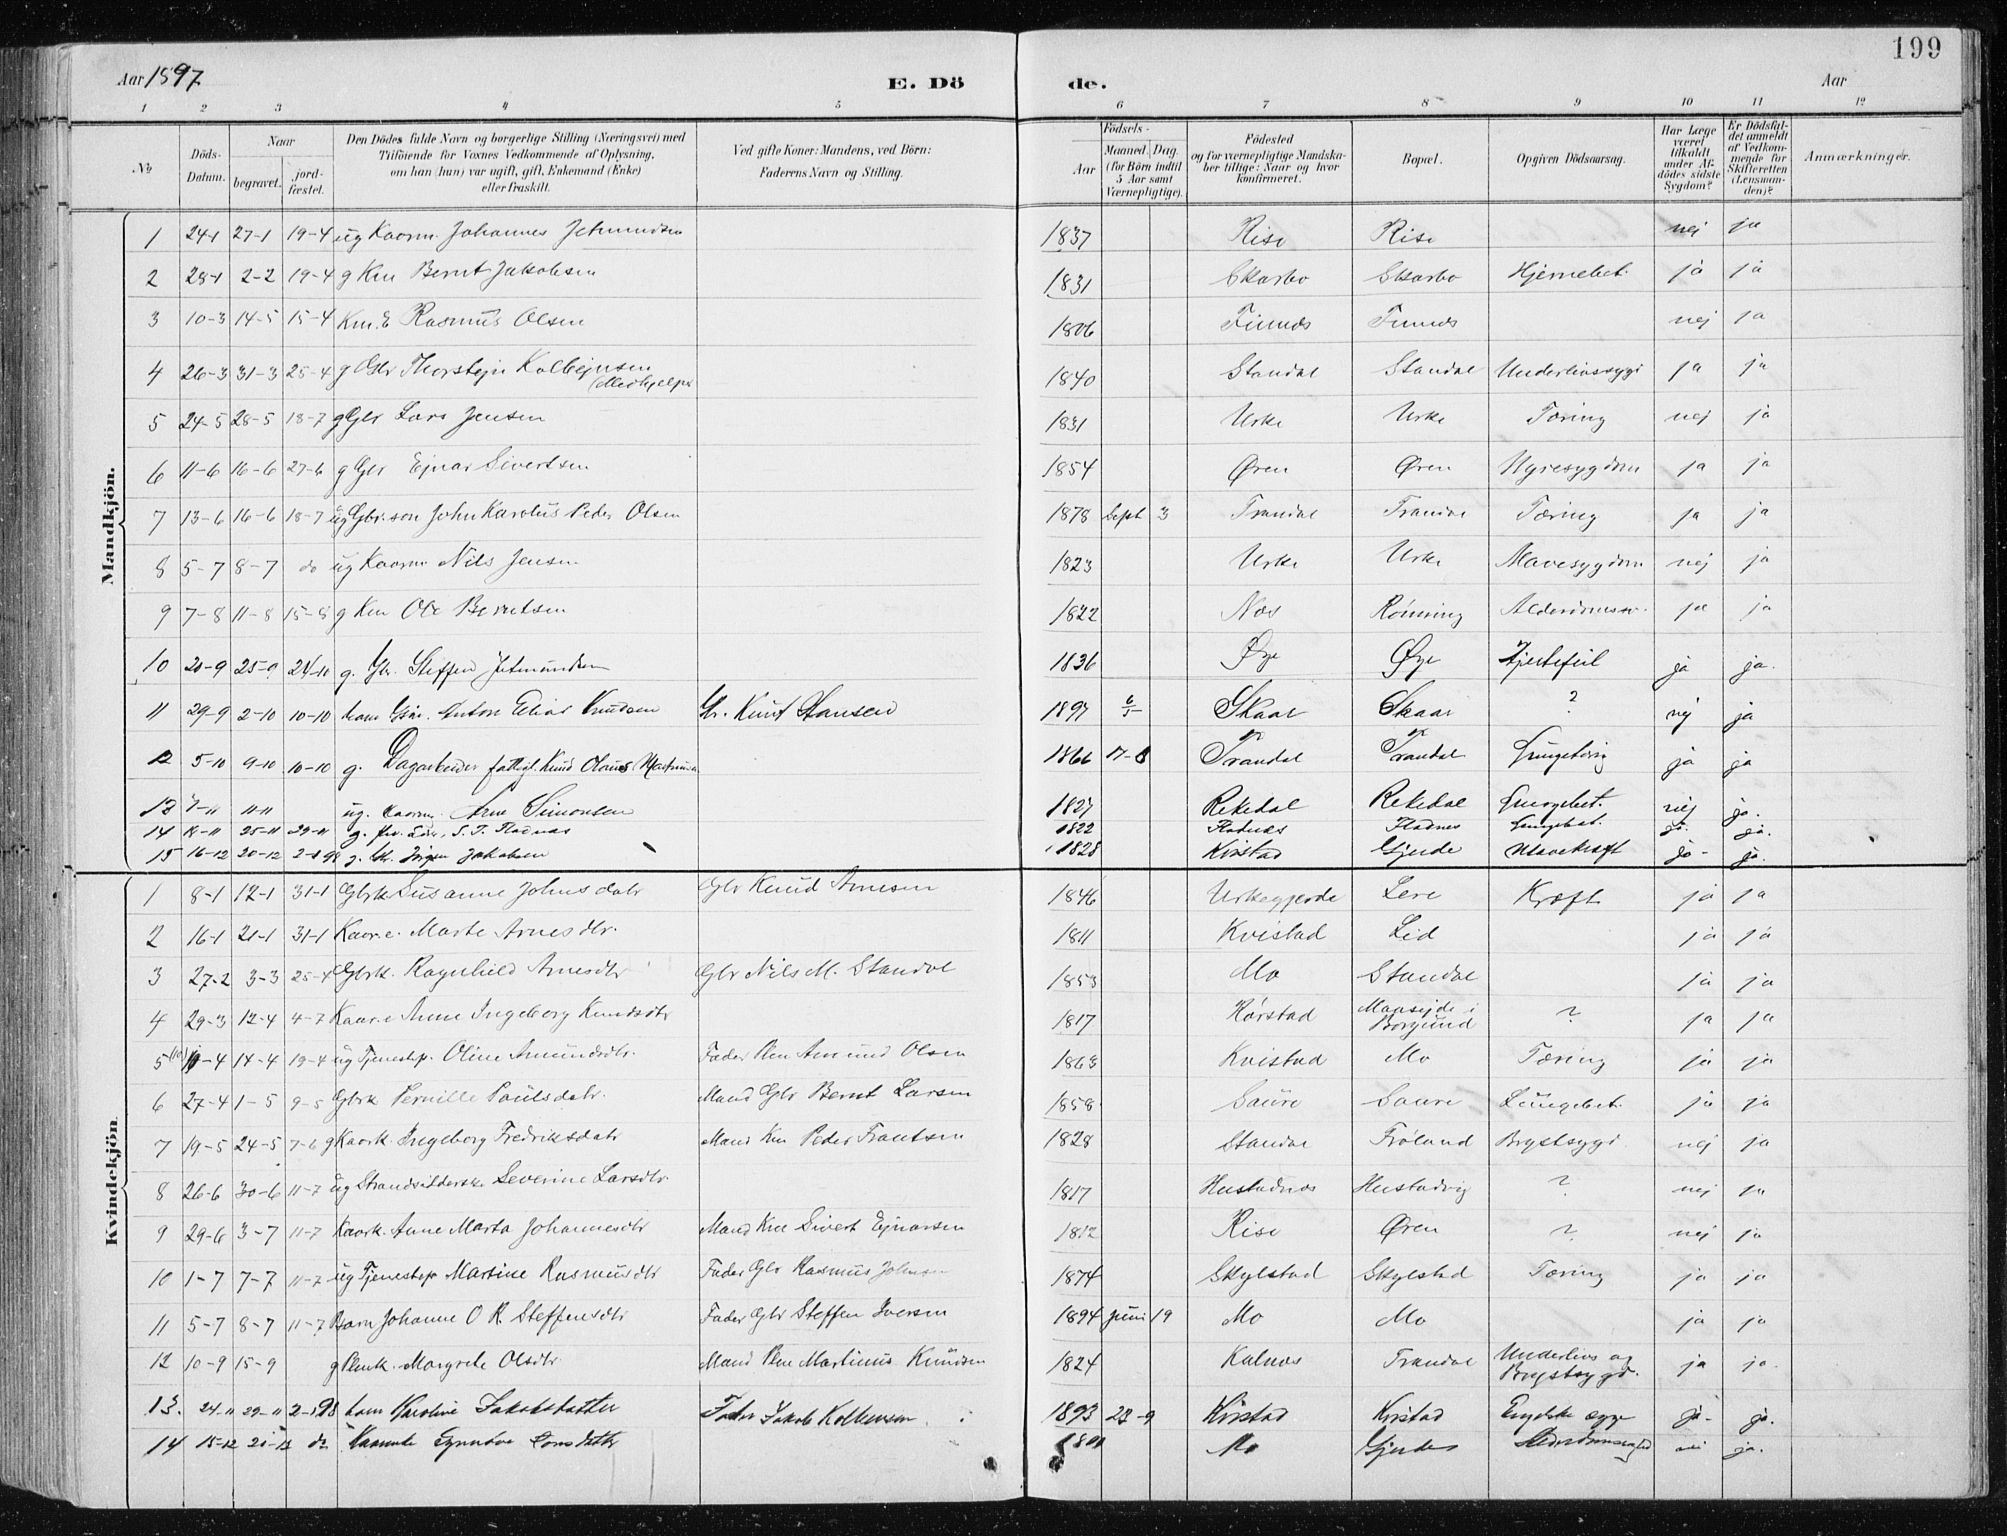 199
Aar 1897.
E. Dö
de.
Aar
1 2 3 4 5 6 7 8 9 10 11 12
No
Döds-Datum.
Naar
begravet.
jord-fæstet.
Den Dödes fulde Navn og borgerlige Stilling (Næringsvei) med
Tilföiende for Voxnes Vedkommende af Oplysning,
om han (hun) var ugift, gift, Enkemand (Enke)
eller fraskilt.
Ved gifte Koner: Mandens, ved Börn:
Faderens Navn og Stilling.
Födsels-
Aar
Maaned. Dag.
(for Börn indtil
5 Aar samt
Værnepligtige).
Födested
og for værnepligtige Mandska-
ber tillige: Naar og hvor
konfirmeret.
Bopæl.
Opgiven Dödsaarsag.
Har Læge
været
tilkaldt
under Af-
dödes sidste
Sygdom?
Er Dödsfal-
det anmeldt
af Vedkom-
mende for
Skifteretten
(Lensman-
den)?
Anmærkninger.
Mandkjön.
1 24-1 27-1 19-4 ug Kaarm. Johannes Jetmundsen 1837 Rise Rise nej ja
2 28-1 2-2 19-4 g Km Bernt Jakobsen 1831 Skarbo Skarbo Hjernebet. ja ja
3 10-3 14-5 15-4 Km. E Rasmus Olsen 1806 nej ja
4 26-3 31-3 25-4 g Gbr Thorstejn Kolbejnsen (Medhjelper 1840 Standal Standal Underlivssygd ja ja
5 24-5 28-5 18-7 g Gbr Lars Jensen 1831 Urke Urke Tæring nej ja
6 11-6 16-6 27-6 g Gbr Ejnar Sivertsen 1854 Øren Øren Nyresygdom ja ja
7 13-6 16-6 18-7 ug Gbr. son John Karolus Peder Olsen 1878 Sept 3 Trandal Trandal Tæring ja ja
8 5-7 8-7 do ug Kaarm Nils Jensen 1823 Urke Urke Mavesygdom nej ja
9 7-8 11-8 15-8 g Km Ole Berntsen 1822 Nes Rönning ja ja
10 20-9 25-9 24-10 g. Gbr. Steffen Jetmundsen 1836 Øye Øye Hjertefeil ja ja.
11 29-9 2-10 10-10 Anton Elias Knudsen Gbr. Knut Hansen 1897 6/5 Skaar Skaar ? nej ja
12 5-10 9-10 10-10 g. Dagarbeider fattigl. Knud Olaus 1866 17-8 Trandal Trandal Lungetæring ja ja
13 7-11 11-11 ug. Kaarm. Arne Simonsen 1827 Rekedal Rekedal Lungebet. nej ja.
14 19-11 25-11 29-11 g. S. T. Fladnæs 1822 Fladnes Fladnes Lungebet. ja. ja.
15 16-12 20-12 2-1 98 g. Jörgen Jakobsen 1828 Kvistad Gjerde Mavekræft ja- ja.
Kvindekjön.
1 8-1 12-1 31-1 Gbrk Susanne Johnsdatr Gbr Knud Arnesen 1846 Urkegjerde Lere Kræft ja ja
2 16-1 21-1 31-1 Kaar. e. Marte Arnesdtr. 1811 Kvistad Lid ja ja
3 27-2 3-3 25-4 Gbrk. Ragnhild Arnesdtr Gbr Nils M. Standal 1853 Mo Standal ja ja
4 29-3 12-4 4-7 Kaar. e Anne Ingeborg Knudsdtr 1817 Körstad Maasejde i Borgund ? ja ja
5 10-4 14-4 19-4 ug Tjenestep. Oline Amundsdtr. Fader Amund Olsen 1863 Kvistad Mo Tæring ja ja
6 27-4 1-5 9-5 Gbrk Pernille Paulsdatr. Mand Gbr Bernt Larsen 1858 Saure Saure Lungebet. ja ja
7 19-5 24-5 7-6 g Kaark. Ingeborg Fredriksdatr Mand Km Peder Frantsen 1828 Standal Fröland Brystsygd. nej ja
8 26-6 30-6 11-7 ug Strandsidderske Severine Larsdtr. 1817 Hustadnes Hustadvig ? nej ja
9 29-6 3-7 11-7 Kaark. Anne Marta Johannesdtr Mand Km Sivert Ejnarsen 1812 Rise Øren ? nej ja
10 1-7 7-7 11-7 ug Tjenestep Martine Rasmusdtr Fader Gbr Rasmus Johnsen 1874 Skylstad Skylstad Tæring ja ja
11 5-7 8-7 11-7 Barn Johanne O R. Steffensdtr Fader Gbr Steffen Iversen 1894 Juni 19 Mo Mo ja ja
12 10-9 15-9 g Margrete Olsdtr. Mand Martinus Knudsen 1824 Kalnes Trandal Underlivs og Brystsygd. ja ja.
13. 24-11 29-11 2-1 98 barn Karoline Jakobsdatter Fader Jakob Kolbensen 1893 27-9 Körstad Körstad Engelske syge ja- ja.
14 15-12 20-12 do Synnöve Larsdatter 1801 Mo Gjerde nei ja.